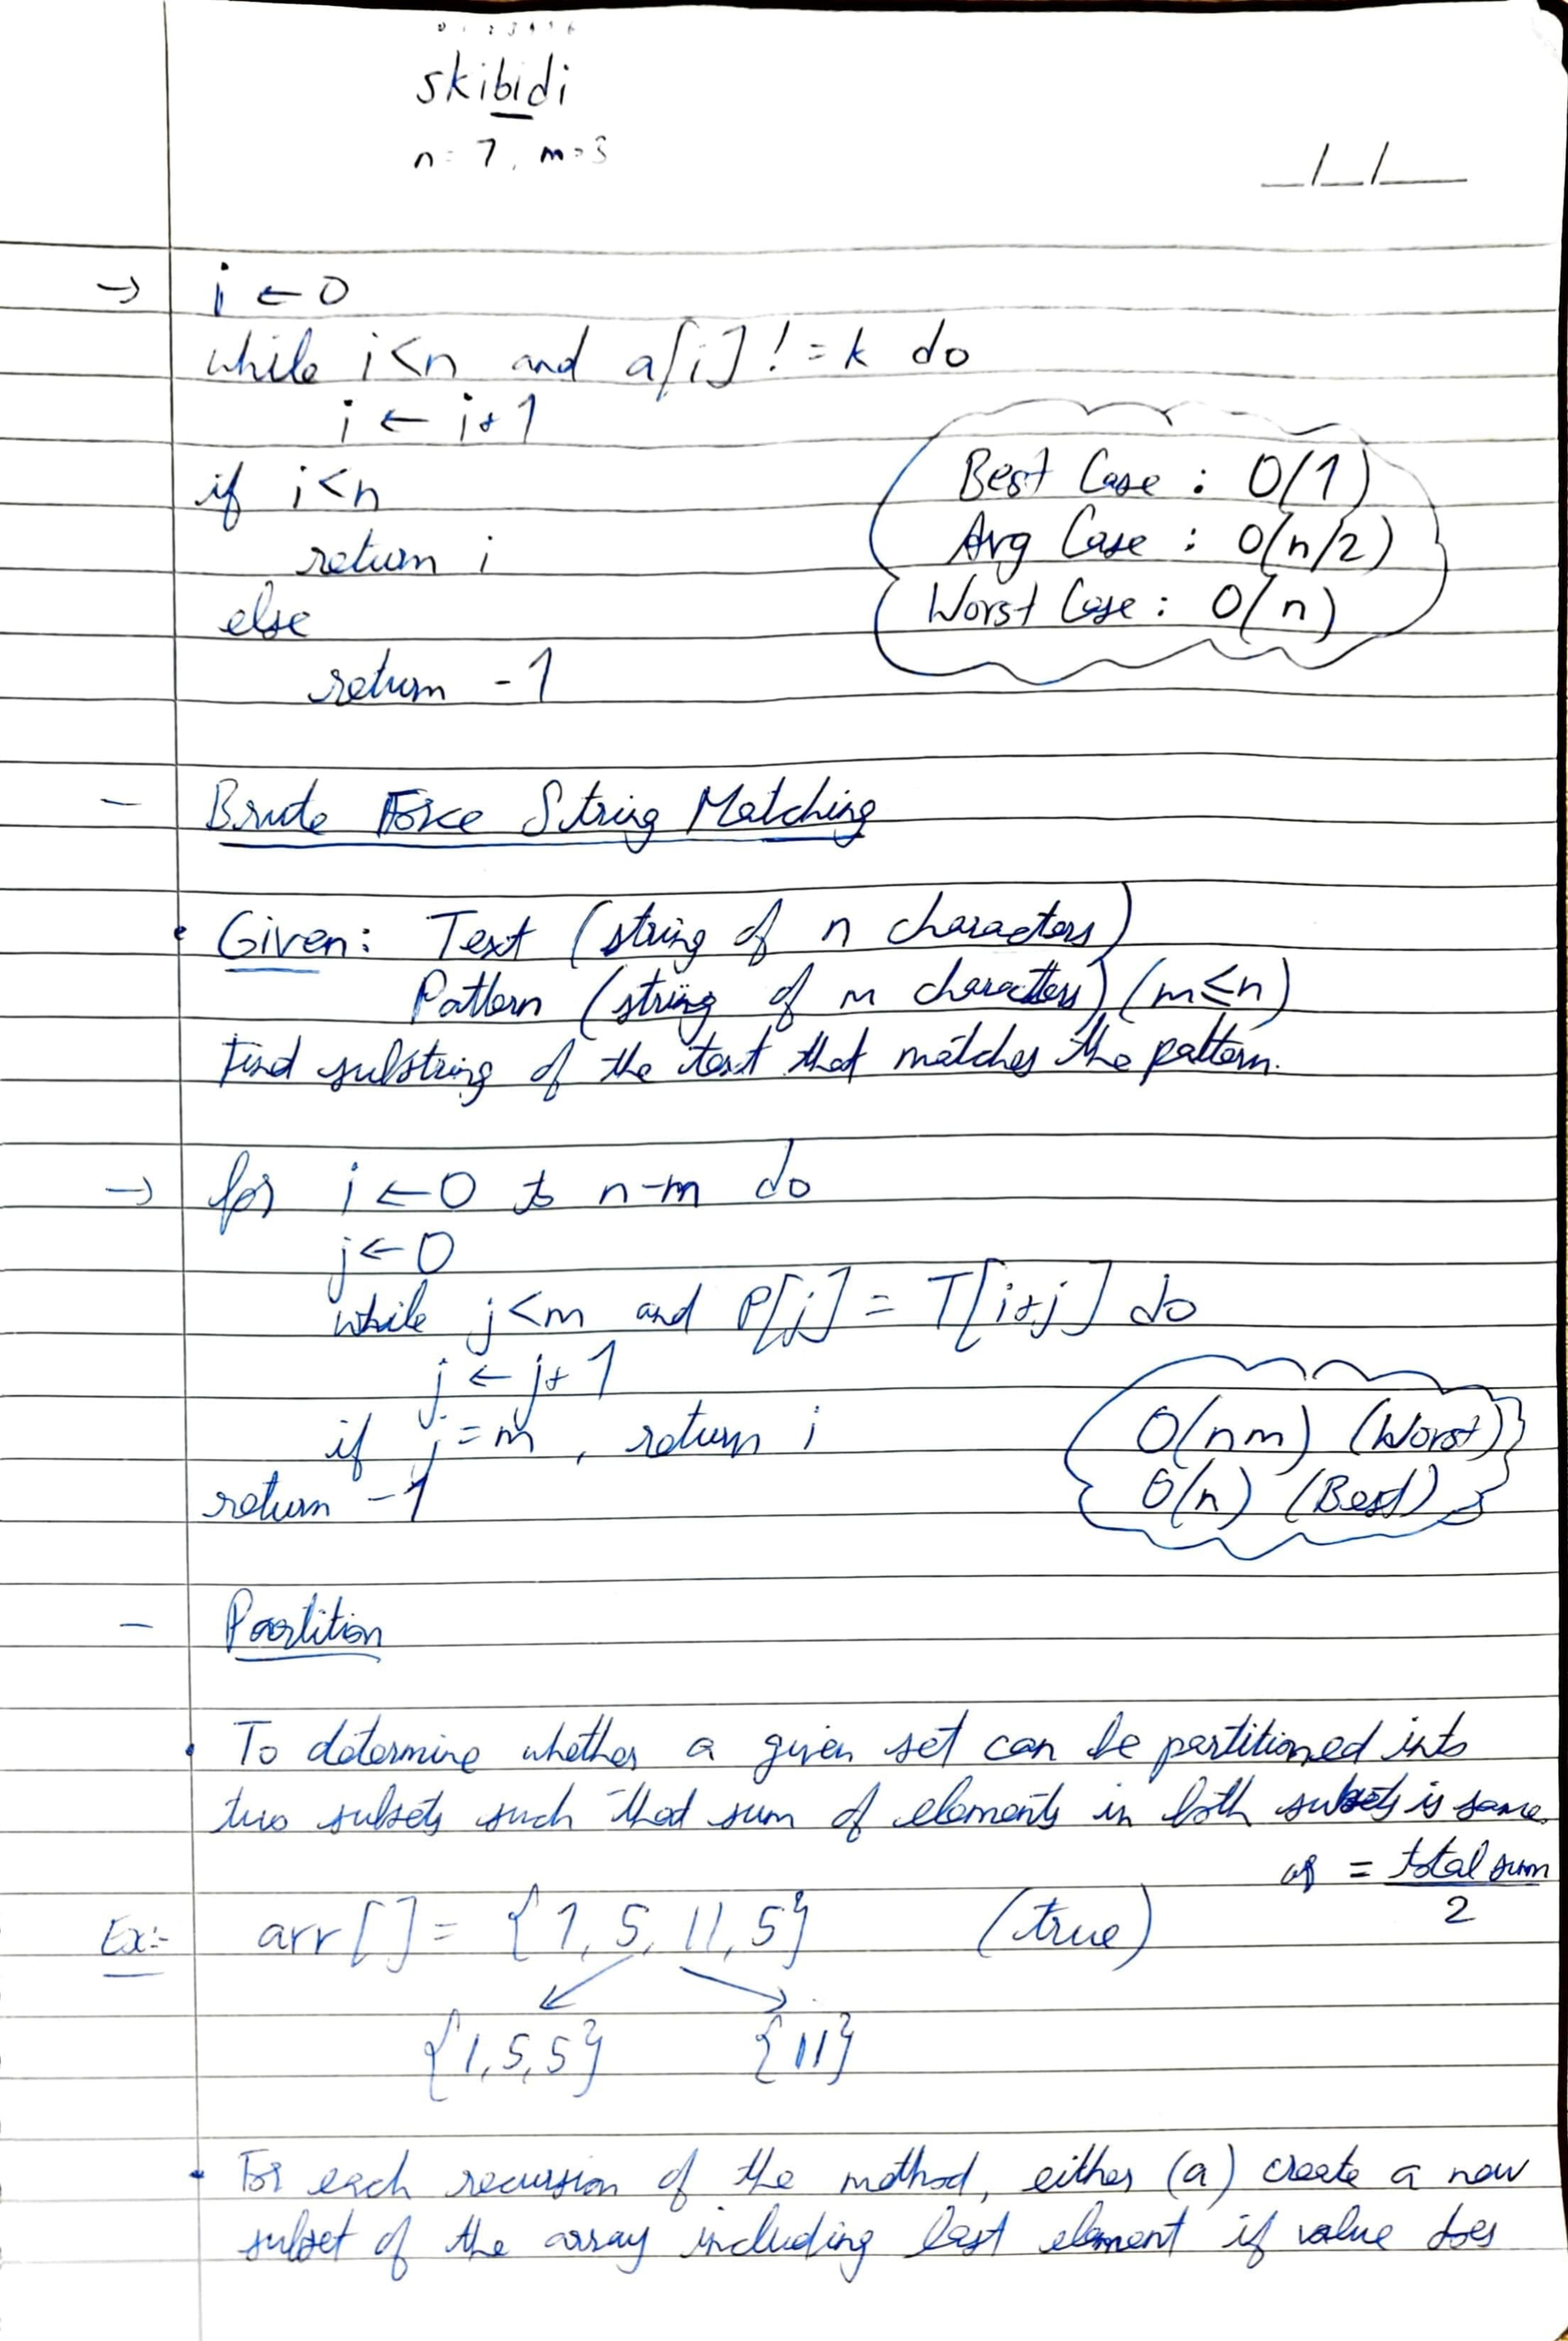 0 1 2 3 4 5 6
skibidi
n = 7, m = 3
_/_/_
→ i ← 0
while i<n and a[i] != k do
i ← i+1
if i<n
return i
else
return -1
Best Case : O(1)
Avg Case : O(n/2)
Worst Case : O(n)
- Brute Force String Matching
• Given: Text (string of n characters)
Pattern (string of m characters) (m≤n)
Find substring of the text that matches the pattern.
→ for i ← 0 to n-m do
j ← 0
while j<m and P[j] = T[i+j] do
j ← j+1
if j = m, return i
return -1
O(nm) (Worst)
O(n) (Best)
- Partition
• To determine whether a given set can be partitioned into
two subsets such that sum of elements in both subsets is same.
= total sum
2
Ex:- arr[] = {1, 5, 11, 5} (true)
{1, 5, 5} {11}
• For each recursion of the method, either (a) create a new
subset of the array including last element if value does